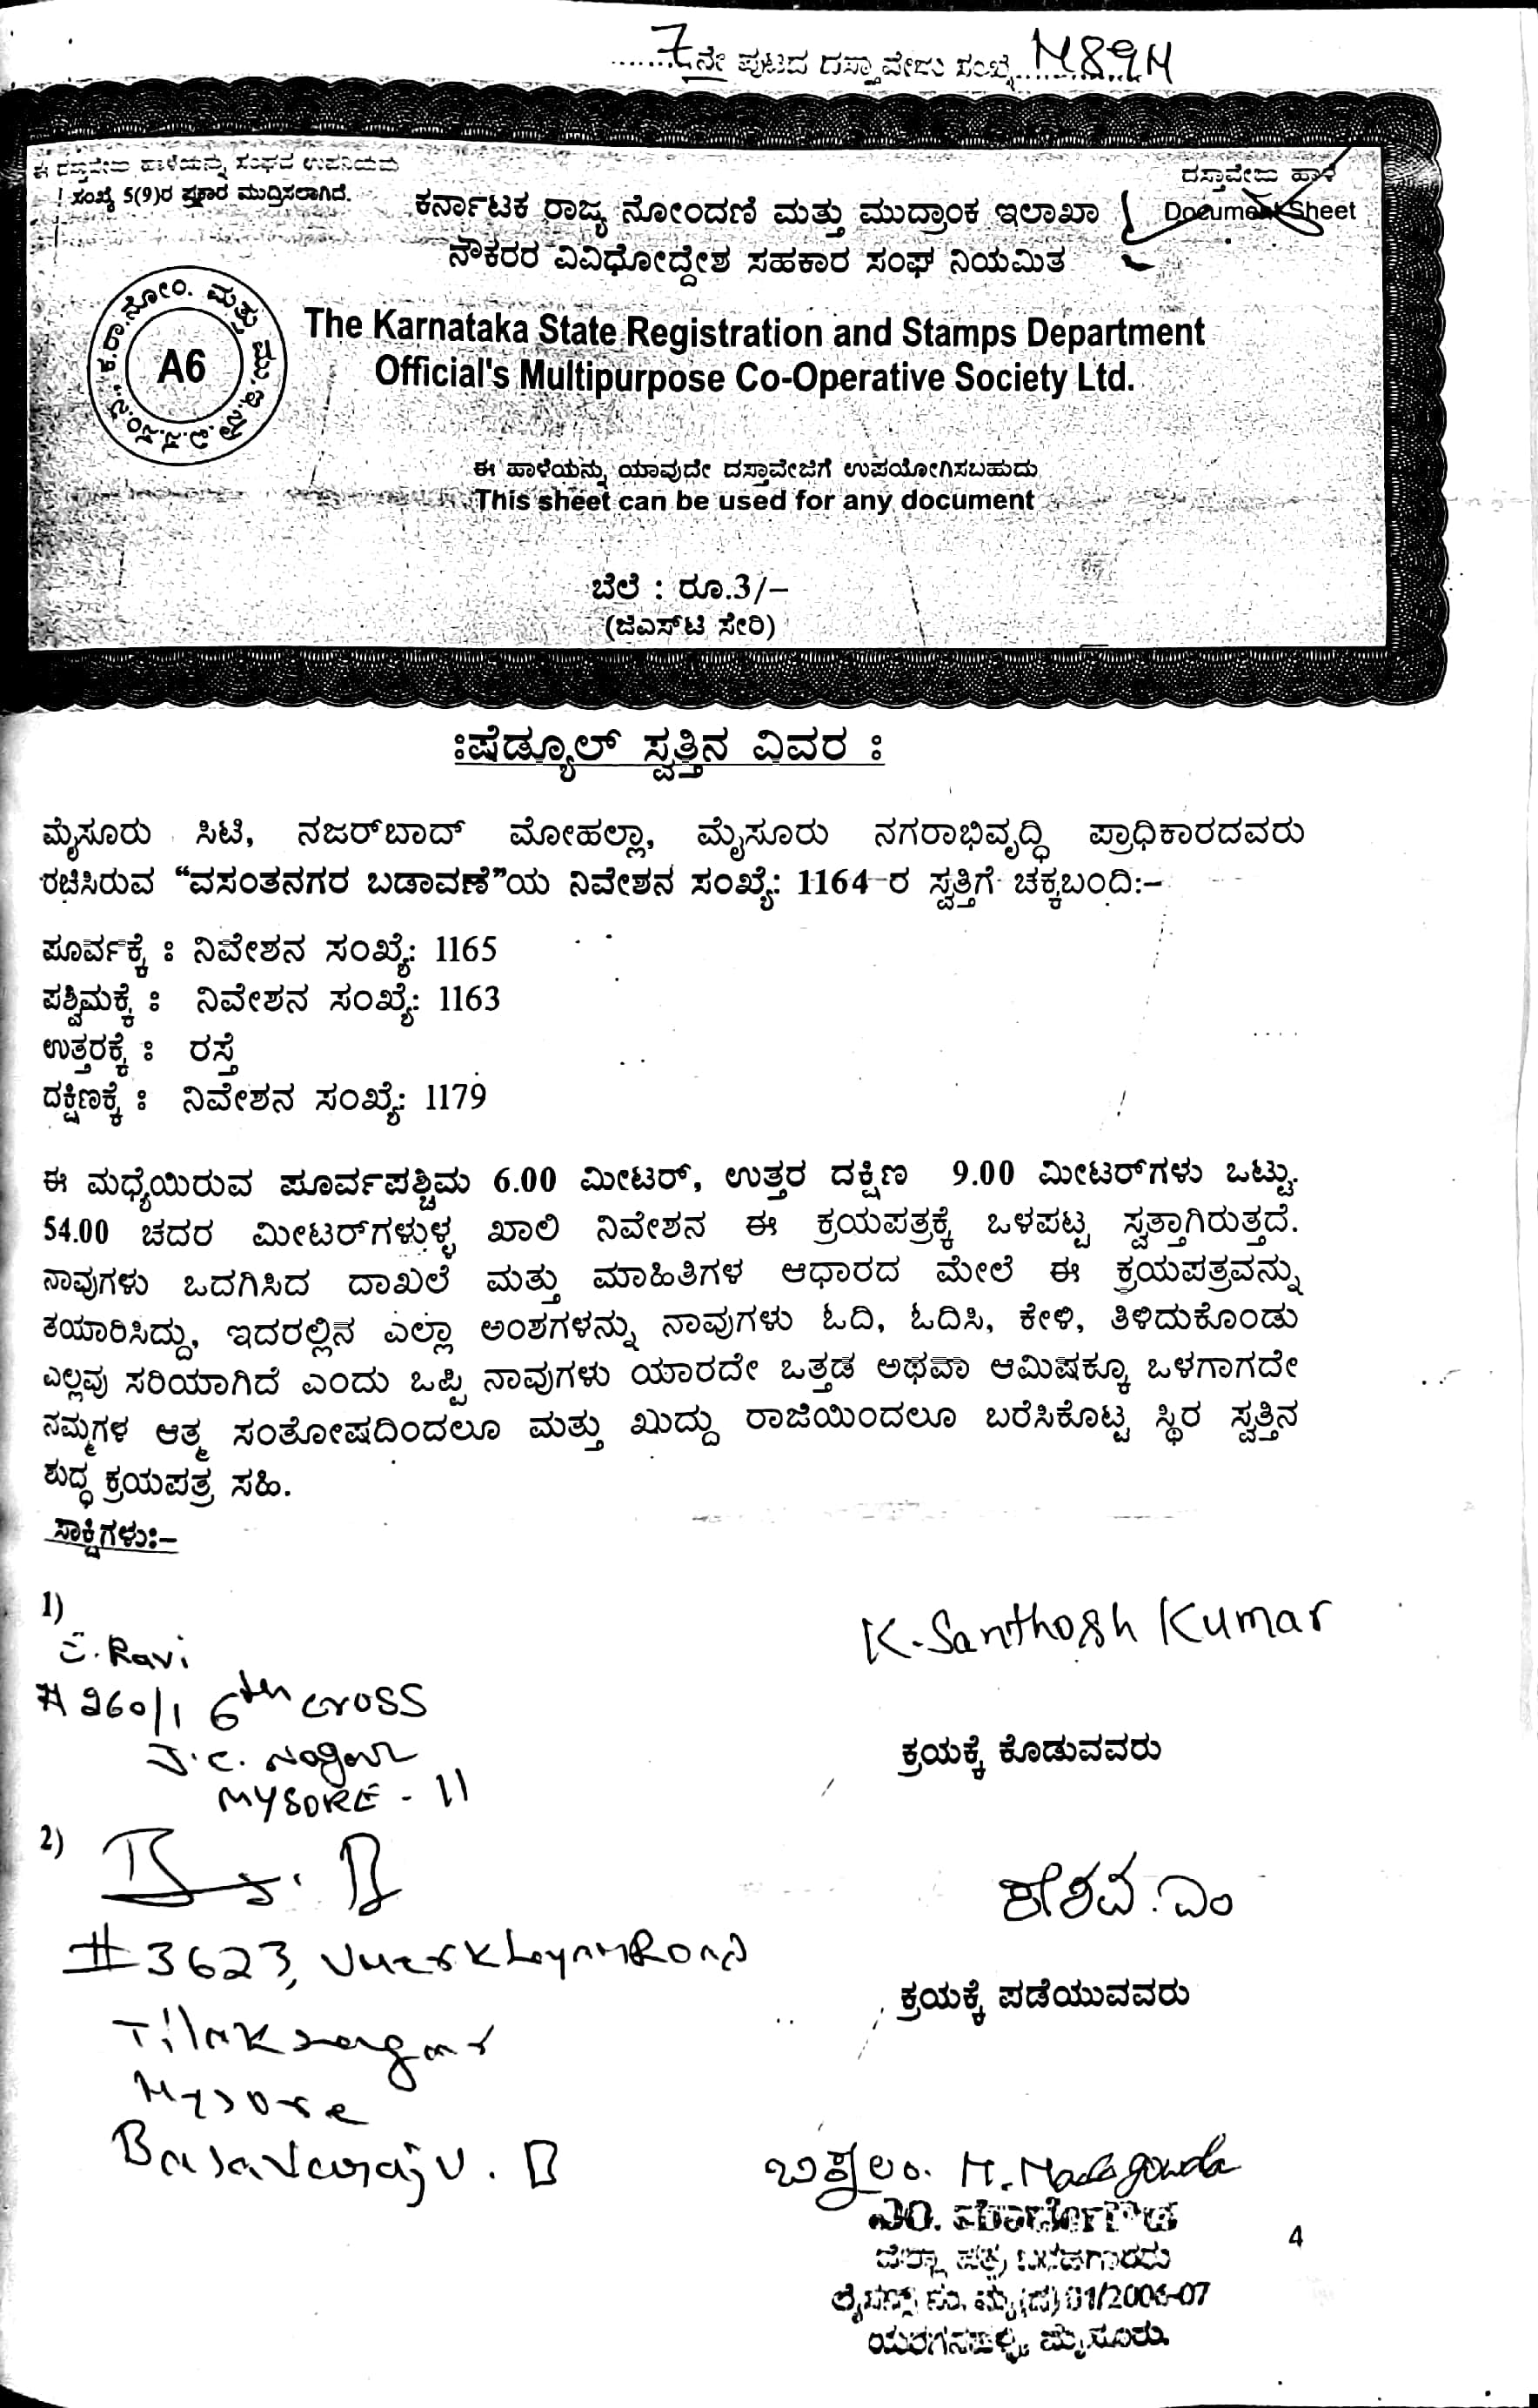 7ನೇ ಪುಟದ ದಸ್ತಾವೇಜು ಸಂಖ್ಯೆ
ಈ ದಸ್ತಾವೇಜು ಹಾಳೆಯನ್ನು ಸಂಘದ ಉಪನಿಯಮ
ಸಂಖ್ಯೆ 5(9)ರ ಪ್ರಕಾರ ಮುದ್ರಿಸಲಾಗಿದೆ.
ದಸ್ತಾವೇಜು ಹಾಳೆ
Document Sheet
ಕರ್ನಾಟಕ ರಾಜ್ಯ ನೋಂದಣಿ ಮತ್ತು ಮುದ್ರಾಂಕ ಇಲಾಖಾ
ನೌಕರರ ವಿವಿಧೋದ್ದೇಶ ಸಹಕಾರ ಸಂಘ ನಿಯಮಿತ
A6
The Karnataka State Registration and Stamps Department
Official's Multipurpose Co-Operative Society Ltd.
ಈ ಹಾಳೆಯನ್ನು ಯಾವುದೇ ದಸ್ತಾವೇಜಿಗೆ ಉಪಯೋಗಿಸಬಹುದು
This sheet can be used for any document
ಬೆಲೆ : ರೂ.3/–
(ಜಿಎಸ್‌ಟಿ ಸೇರಿ)
ಃಷೆಡ್ಯೂಲ್ ಸ್ವತ್ತಿನ ವಿವರ ಃ
ಮೈಸೂರು ಸಿಟಿ, ನಜರ್‌ಬಾದ್ ಮೋಹಲ್ಲಾ, ಮೈಸೂರು ನಗರಾಭಿವೃದ್ಧಿ ಪ್ರಾಧಿಕಾರದವರು
ರಚಿಸಿರುವ "ವಸಂತನಗರ ಬಡಾವಣೆ"ಯ ನಿವೇಶನ ಸಂಖ್ಯೆ: 1164-ರ ಸ್ವತ್ತಿಗೆ ಚಕ್ಕಬಂದಿ:–
ಪೂರ್ವಕ್ಕೆ ಃ ನಿವೇಶನ ಸಂಖ್ಯೆ: 1165
ಪಶ್ಚಿಮಕ್ಕೆ ಃ ನಿವೇಶನ ಸಂಖ್ಯೆ: 1163
ಉತ್ತರಕ್ಕೆ ಃ ರಸ್ತೆ
ದಕ್ಷಿಣಕ್ಕೆ ಃ ನಿವೇಶನ ಸಂಖ್ಯೆ: 1179
ಈ ಮಧ್ಯೆಯಿರುವ ಪೂರ್ವಪಶ್ಚಿಮ 6.00 ಮೀಟರ್, ಉತ್ತರ ದಕ್ಷಿಣ 9.00 ಮೀಟರ್‌ಗಳು ಒಟ್ಟು
54.00 ಚದರ ಮೀಟರ್‌ಗಳುಳ್ಳ ಖಾಲಿ ನಿವೇಶನ ಈ ಕ್ರಯಪತ್ರಕ್ಕೆ ಒಳಪಟ್ಟ ಸ್ವತ್ತಾಗಿರುತ್ತದೆ.
ನಾವುಗಳು ಒದಗಿಸಿದ ದಾಖಲೆ ಮತ್ತು ಮಾಹಿತಿಗಳ ಆಧಾರದ ಮೇಲೆ ಈ ಕ್ರಯಪತ್ರವನ್ನು
ತಯಾರಿಸಿದ್ದು, ಇದರಲ್ಲಿನ ಎಲ್ಲಾ ಅಂಶಗಳನ್ನು ನಾವುಗಳು ಓದಿ, ಓದಿಸಿ, ಕೇಳಿ, ತಿಳಿದುಕೊಂಡು
ಎಲ್ಲವು ಸರಿಯಾಗಿದೆ ಎಂದು ಒಪ್ಪಿ ನಾವುಗಳು ಯಾರದೇ ಒತ್ತಡ ಅಥವಾ ಆಮಿಷಕ್ಕೂ ಒಳಗಾಗದೇ
ನಮ್ಮಗಳ ಆತ್ಮ ಸಂತೋಷದಿಂದಲೂ ಮತ್ತು ಖುದ್ದು ರಾಜಿಯಿಂದಲೂ ಬರೆಸಿಕೊಟ್ಟ ಸ್ಥಿರ ಸ್ವತ್ತಿನ
ಶುದ್ಧ ಕ್ರಯಪತ್ರ ಸಹಿ.
ಸಾಕ್ಷಿಗಳು:–
1)
Ravi
# 260/1 6th cross
J.C. Nagar
MYSORE - 11
K. Santhosh Kumar
ಕ್ರಯಕ್ಕೆ ಕೊಡುವವರು
2)
# 3623, Road
Tilaknagar
Mysore
Basavaraju. B
ಕೇಶವ. ಎಂ
ಕ್ರಯಕ್ಕೆ ಪಡೆಯುವವರು
ಬಿಕ್ಕಲಂ. M. Madegowda
ಎಂ. ಮಾದೇಗೌಡ
ಪತ್ರ ಬರಹಗಾರರು
01/2006-07
ಮೈಸೂರು.
4